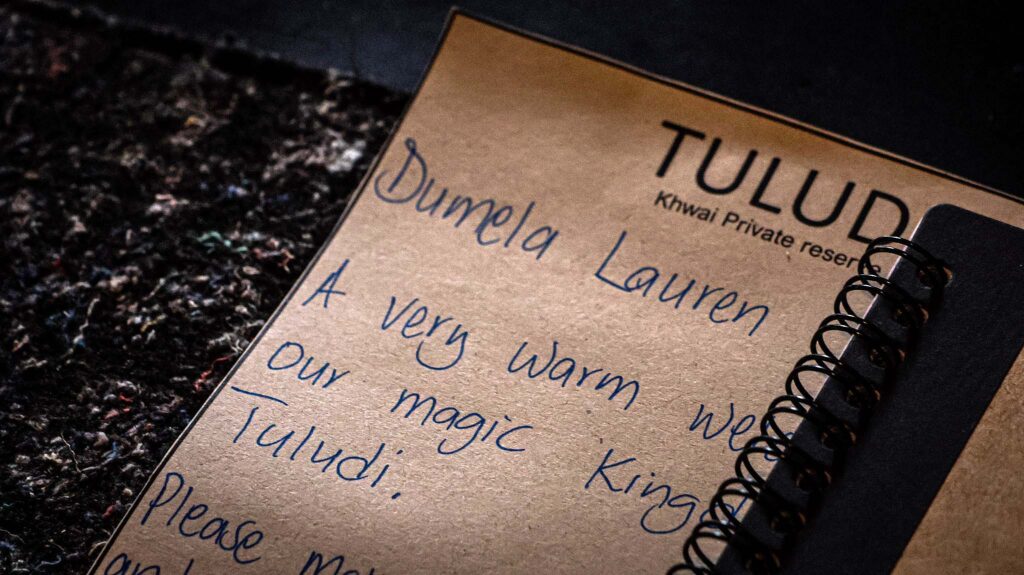 TULUD
Khwai Private reserve
Dumela Lauren
A very warm
our magic
Tuludi.
Please